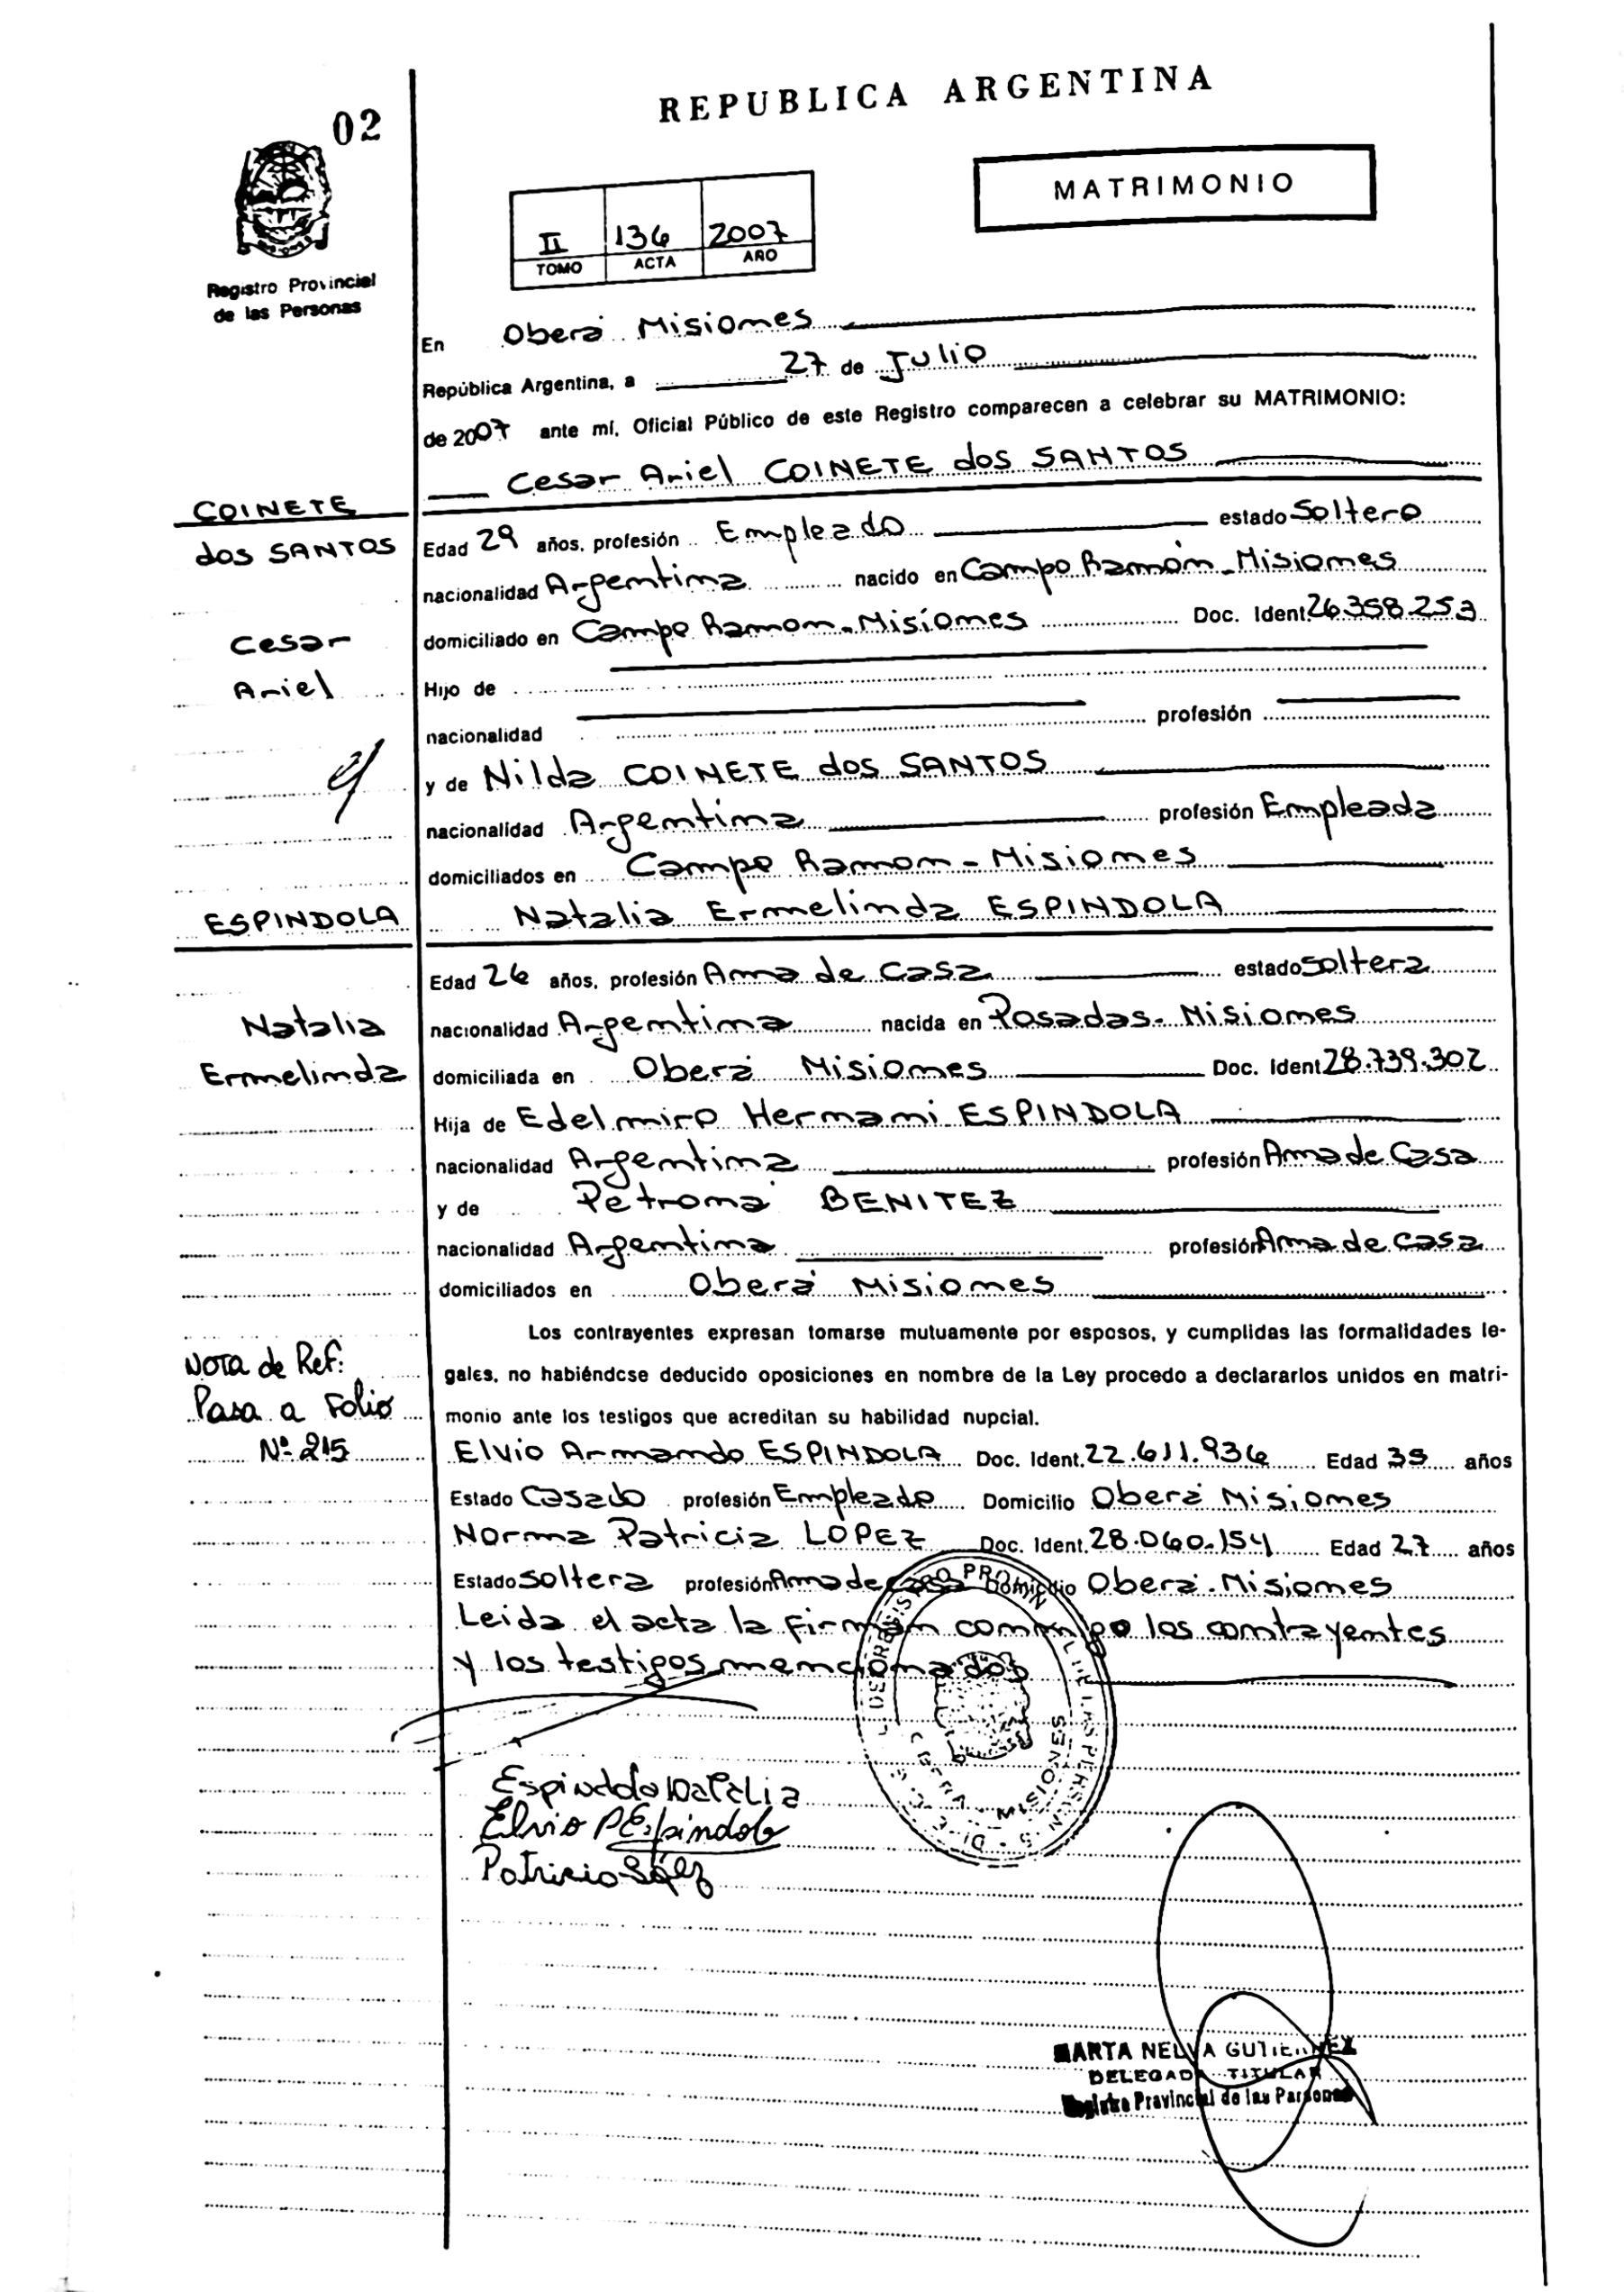 02
REPUBLICA ARGENTINA
MATRIMONIO
Registro Provincial
de las Personas
II 136 2007
TOMO ACTA AÑO
En Oberá Misiones
República Argentina, a 27 de Julio
de 2007 ante mí, Oficial Público de este Registro comparecen a celebrar su MATRIMONIO:
Cesar Ariel COINETE dos SANTOS
COINETE
dos SANTOS
Cesar
Ariel
Edad 29 años, profesión Empleado estado Soltero
nacionalidad Argentina nacido en Campo Ramón - Misiones
domiciliado en Campo Ramon - Misiones Doc. Ident. 26.358.253
Hijo de
nacionalidad profesión
y de Nilda COINETE dos SANTOS
nacionalidad Argentina profesión Empleada
domiciliados en Campo Ramon - Misiones
Natalia Ermelinda ESPINDOLA
ESPINDOLA
Natalia
Ermelinda
Edad 26 años, profesión Ama de Casa estado Soltera
nacionalidad Argentina nacida en Posadas - Misiones
domiciliada en Oberá Misiones Doc. Ident. 28.739.302
Hija de Edelmiro Hernani ESPINDOLA
nacionalidad Argentina profesión Ama de Casa
y de Petrona BENITEZ
nacionalidad Argentina profesión Ama de Casa
domiciliados en Oberá Misiones
Los contrayentes expresan tomarse mutuamente por esposos, y cumplidas las formalidades le-
gales, no habiéndose deducido oposiciones en nombre de la Ley procedo a declararlos unidos en matri-
monio ante los testigos que acreditan su habilidad nupcial.
Nota de Ref:
Pasa a Folio
Nº 215
Elvio Armando ESPINDOLA Doc. Ident. 22.611.936 Edad 35 años
Estado Casado profesión Empleado Domicilio Oberá Misiones
Norma Patricia LOPEZ Doc. Ident. 28.060.154 Edad 27 años
Estado Soltera profesión Ama de Casa Domicilio Oberá - Misiones
Leida el acta la firman conmigo los contrayentes
y los testigos mencionados
Espindola Natalia
Elvio Espindola
MARTA NELVA GUTIERREZ
DELEGADA TITULAR
Registro Provincial de las Personas